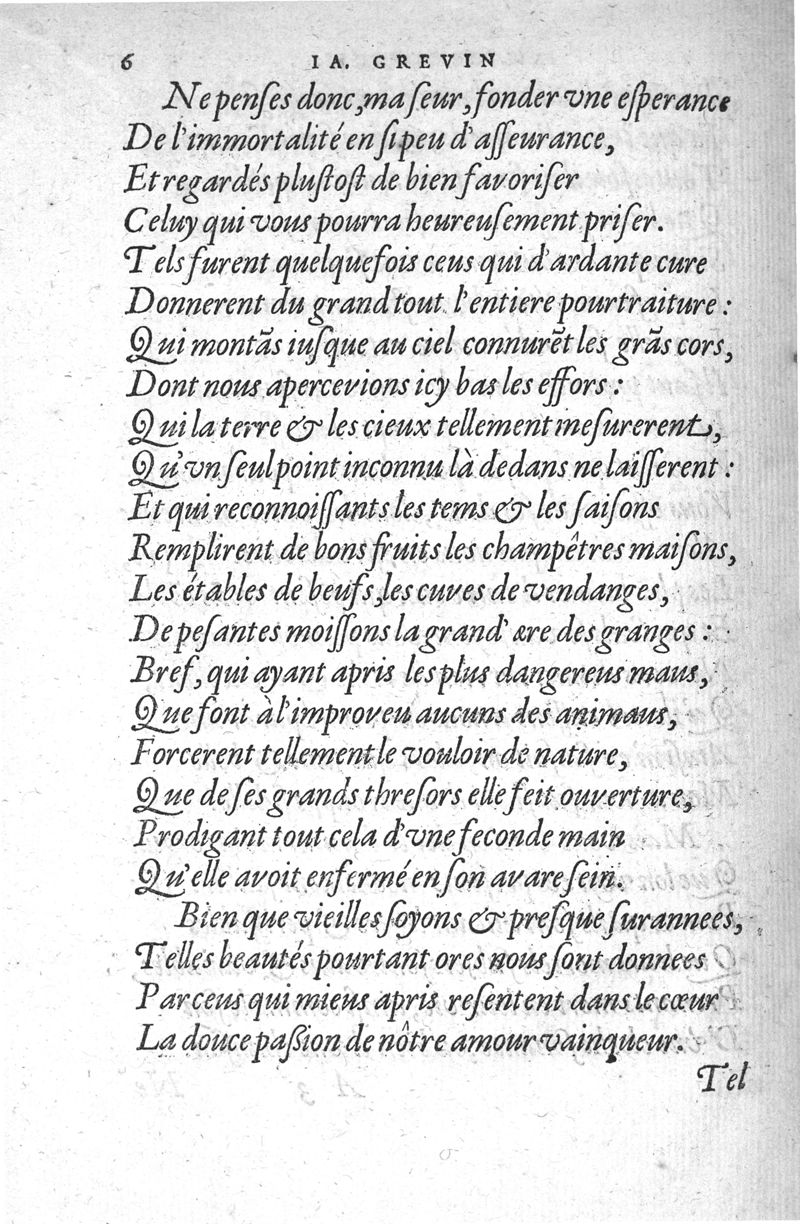 6 IA. GREVIN
Ne penſes donc, ma ſeur, fonder vne eſperance
De l'immortalité en ſi peu d'aſſeurance,
Et regardés pluſtoſt de bien favoriſer
Celuy qui vous pourra heureuſement priſer.
Tels furent quelquefois ceus qui d'ardante cure
Donnerent du grand tout l'entiere pourtraiture :
Qui montãs iuſque au ciel connurẽt les grãs cors,
Dont nous apercevions icy bas les effors :
Qui la terre & les cieux tellement meſurerent,
Qu'vn ſeul point inconnu là dedans ne laiſſerent :
Et qui reconnoiſſants les tems & les ſaiſons
Remplirent de bons fruits les champêtres maiſons,
Les étables de beufs, les cuves de vendanges,
De peſantes moiſſons la grand' ære des granges :
Bref, qui ayant apris les plus dangereus maus,
Que font à l'improveu aucuns des animaus,
Forcerent tellement le vouloir de nature,
Que de ſes grands threſors elle feit ouverture,
Prodigant tout cela d'vne feconde main
Qu'elle avoit enfermé en ſon avare ſein.
Bien que vieilles ſoyons & preſque ſurannees,
Telles beautés pourtant ores nous ſont donnees
Par ceus qui mieus apris reſentent dans le cœur
La douce paſsion de nôtre amour vainqueur.
Tel